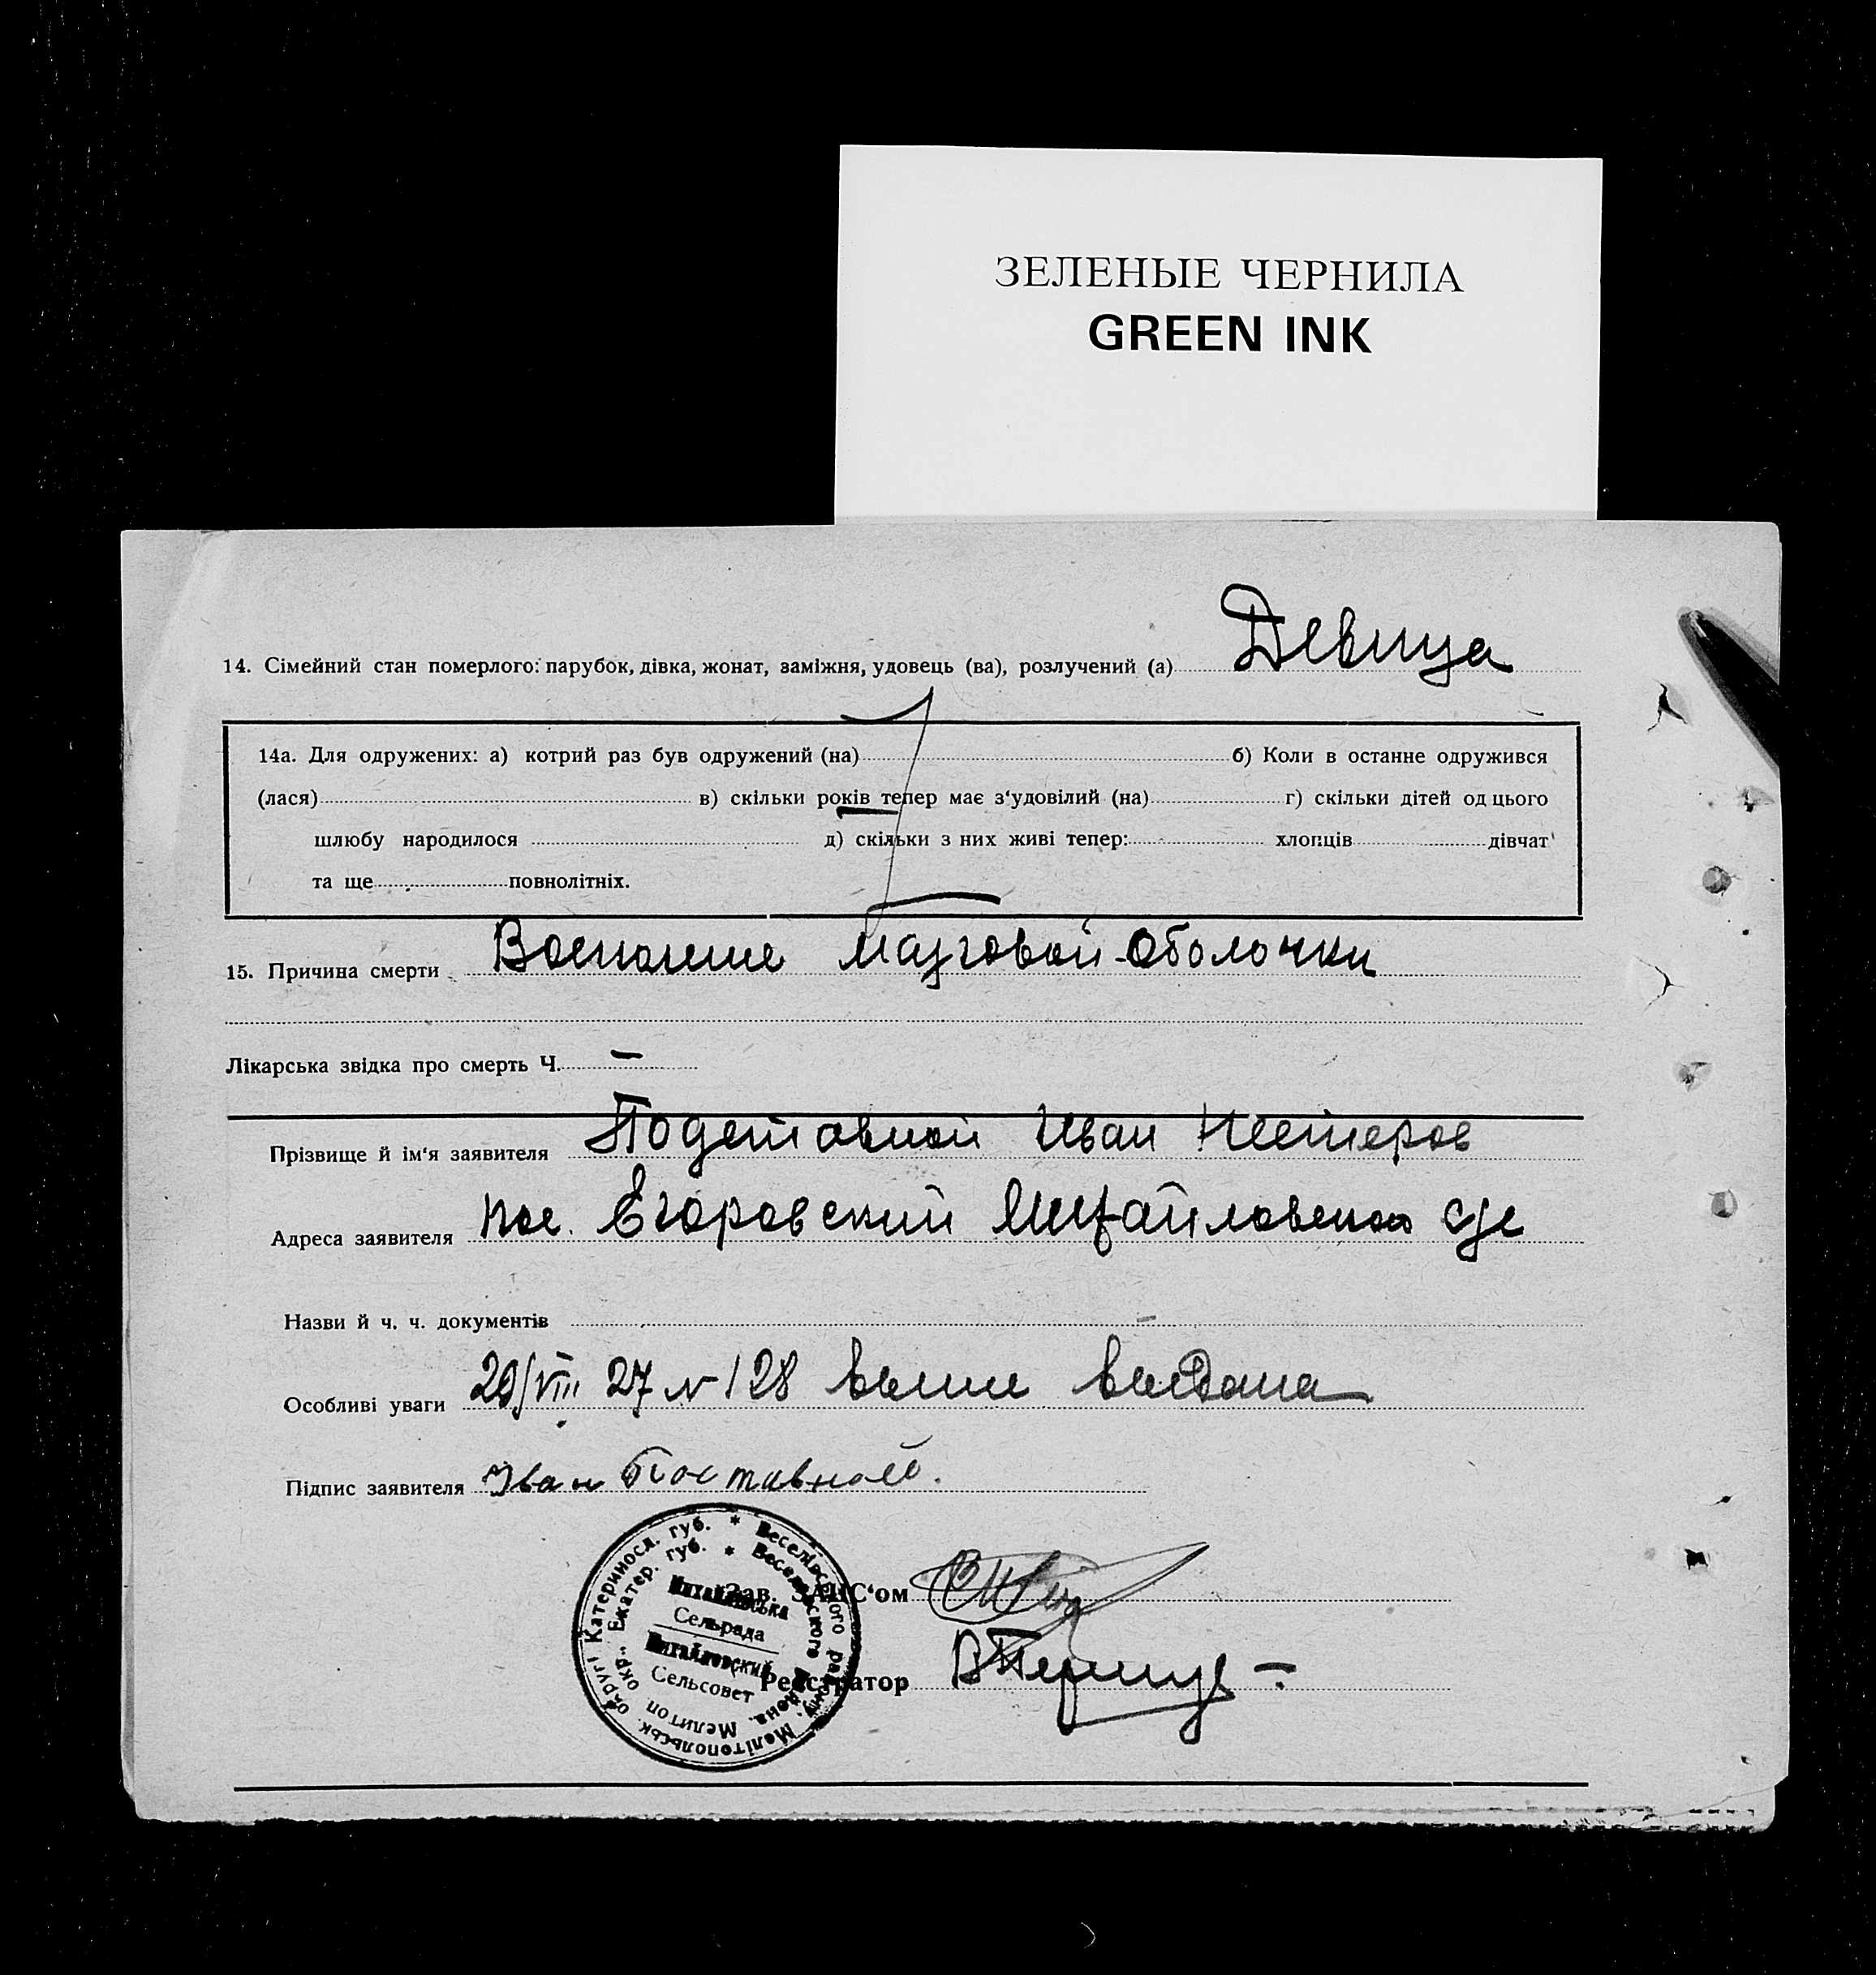 ЗЕЛЕНЫЕ ЧЕРНИЛА
GREEN INK
14. Сімейний стан померлого: парубок, дівка, жонат, заміжня, удовець (ва), розлучений (а) Девица
14а. Для одружених: а) котрий раз був одружений (на) б) Коли в останне одружився
(лася) в) скільки років тепер має з‘удовілий (на) г) скільки дітей од цього
шлюбу народилося д) скільки з них живі тепер: хлопців дівчат
та ще повнолітніх.
15. Причина смерти Восполение Мазговой Оболочки
Лікарська звідка про смерть Ч. —
Прізвище й ім‘я заявителя Подставной Иван Нестеров
Адреса заявителя пос. Егоровский Михайловского с/с
Назви й ч. ч. документів —
Особливі уваги 29/VIII 27 N 128 выпис выдана
Підпис заявителя Іван Поставной.
Зав. ЗАГС‘ом
Реєстратор
Катеринос. губ. * Веселівського району, Мелітопольськ. округі
Екатер. губ. * Веселовского района. Мелитоп окр.
Михайлівська
Сельрада
Михайловский
Сельсовет